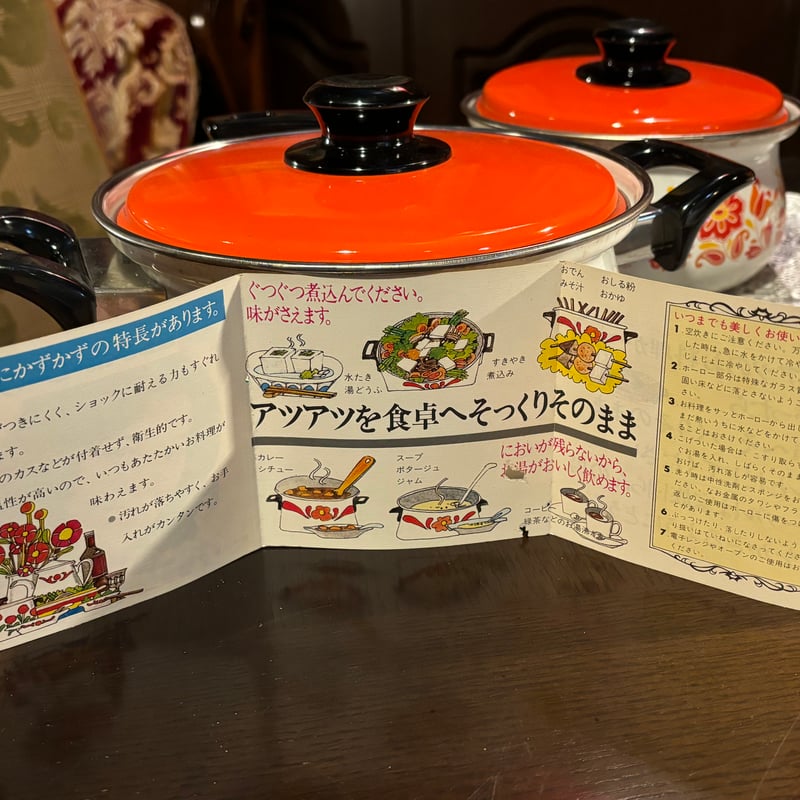 にかずかずの特長があります。
つきにくく、ショックに耐える力もすぐれ
ます。
のカスなどが付着せず、衛生的です。
性が高いので、いつもあたたかいお料理が
味わえます。
●汚れが落ちやすく、お手
入れがカンタンです。
ぐつぐつ煮込んでください。
味がさえます。
水たき
湯どうふ
すきやき
煮込み
おでん
みそ汁
おしる粉
おかゆ
アツアツを食卓へそっくりそのまま
カレー
シチュー
スープ
ポタージュ
ジャム
においが残らないから、
湯がおいしく飲めます。
コーヒー
緑茶などのお湯沸
いつまでも美しくお使い
1 空炊きにご注意ください。万
した時は、急に水をかけて冷や
じょじょに冷やしてください
2 ホーロー部分は特殊なガラス質
固い床などに落とさないよう
さい。
3 お料理をサッとホーローから出し
まだ熱いうちに水などをかけて
ることはおさけください。
4 こげついた場合は、こすり取ら
ぐお湯を入れ、しばらくそのまま
おけば、汚れ落しが容易です。
5 洗う時は中性洗剤とスポンジをお
ださい。なお金属のタワシやクラ
返しのご使用はホーローに傷をつ
す。
6 ぶっつけたり、落したりしないよう
り扱いはていねいになさってくださ
7 電子レンジやオーブンのご使用はお
ください。